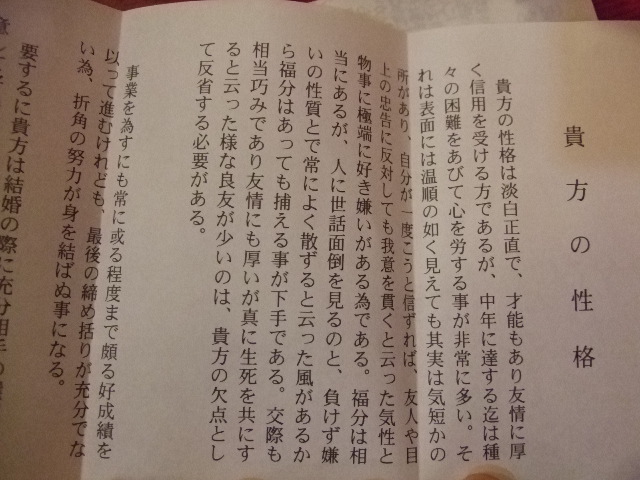 貴方の性格
貴方の性格は淡白正直で、才能もあり友情に厚
く信用を受ける方であるが、中年に達する迄は種
々の困難をあびて心を労する事が非常に多い。そ
れは表面には温順の如く見えても其実は気短かの
所があり、自分が一度こうと信ずれば、友人や目
上の忠告に反対しても我意を貫くと云った気性と
物事に極端に好き嫌いがある為である。福分は相
当にあるが、人に世話面倒を見るのと、負けず嫌
いの性質とで常によく散ずると云った風があるか
ら福分はあっても捕える事が下手である。交際も
相当巧みであり友情にも厚いが真に生死を共にす
ると云った様な良友が少いのは、貴方の欠点とし
て反省する必要がある。
事業を為すにも常に或る程度まで頗る好成績を
以って進むけれども、最後の締め括りが充分でな
い為、折角の努力が身を結ばぬ事になる。
要するに貴方は結婚の際に充分相手の